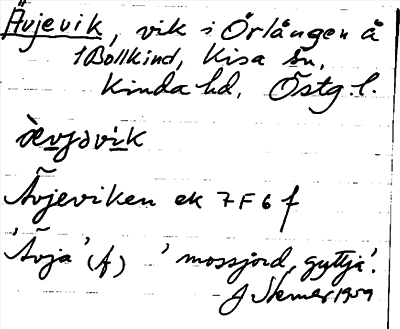 Ävjevik, vik i Örlången å
1 Bollkind, Kisa sn,
Kinda hd, Östg.l.
ævjəvik
Ävjeviken ek 7F6f
'Ävja' (f) 'mossjord, gyttja'.
J 1959